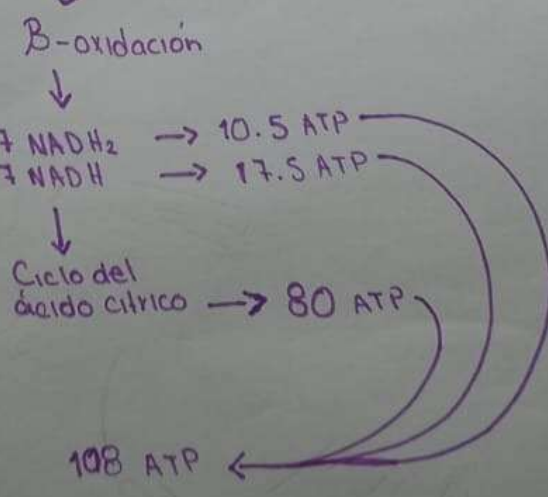 β-oxidación
↓
7 NADH₂ → 10.5 ATP
7 NADH → 17.5 ATP
↓
Ciclo del
ácido cítrico → 80 ATP
108 ATP ←